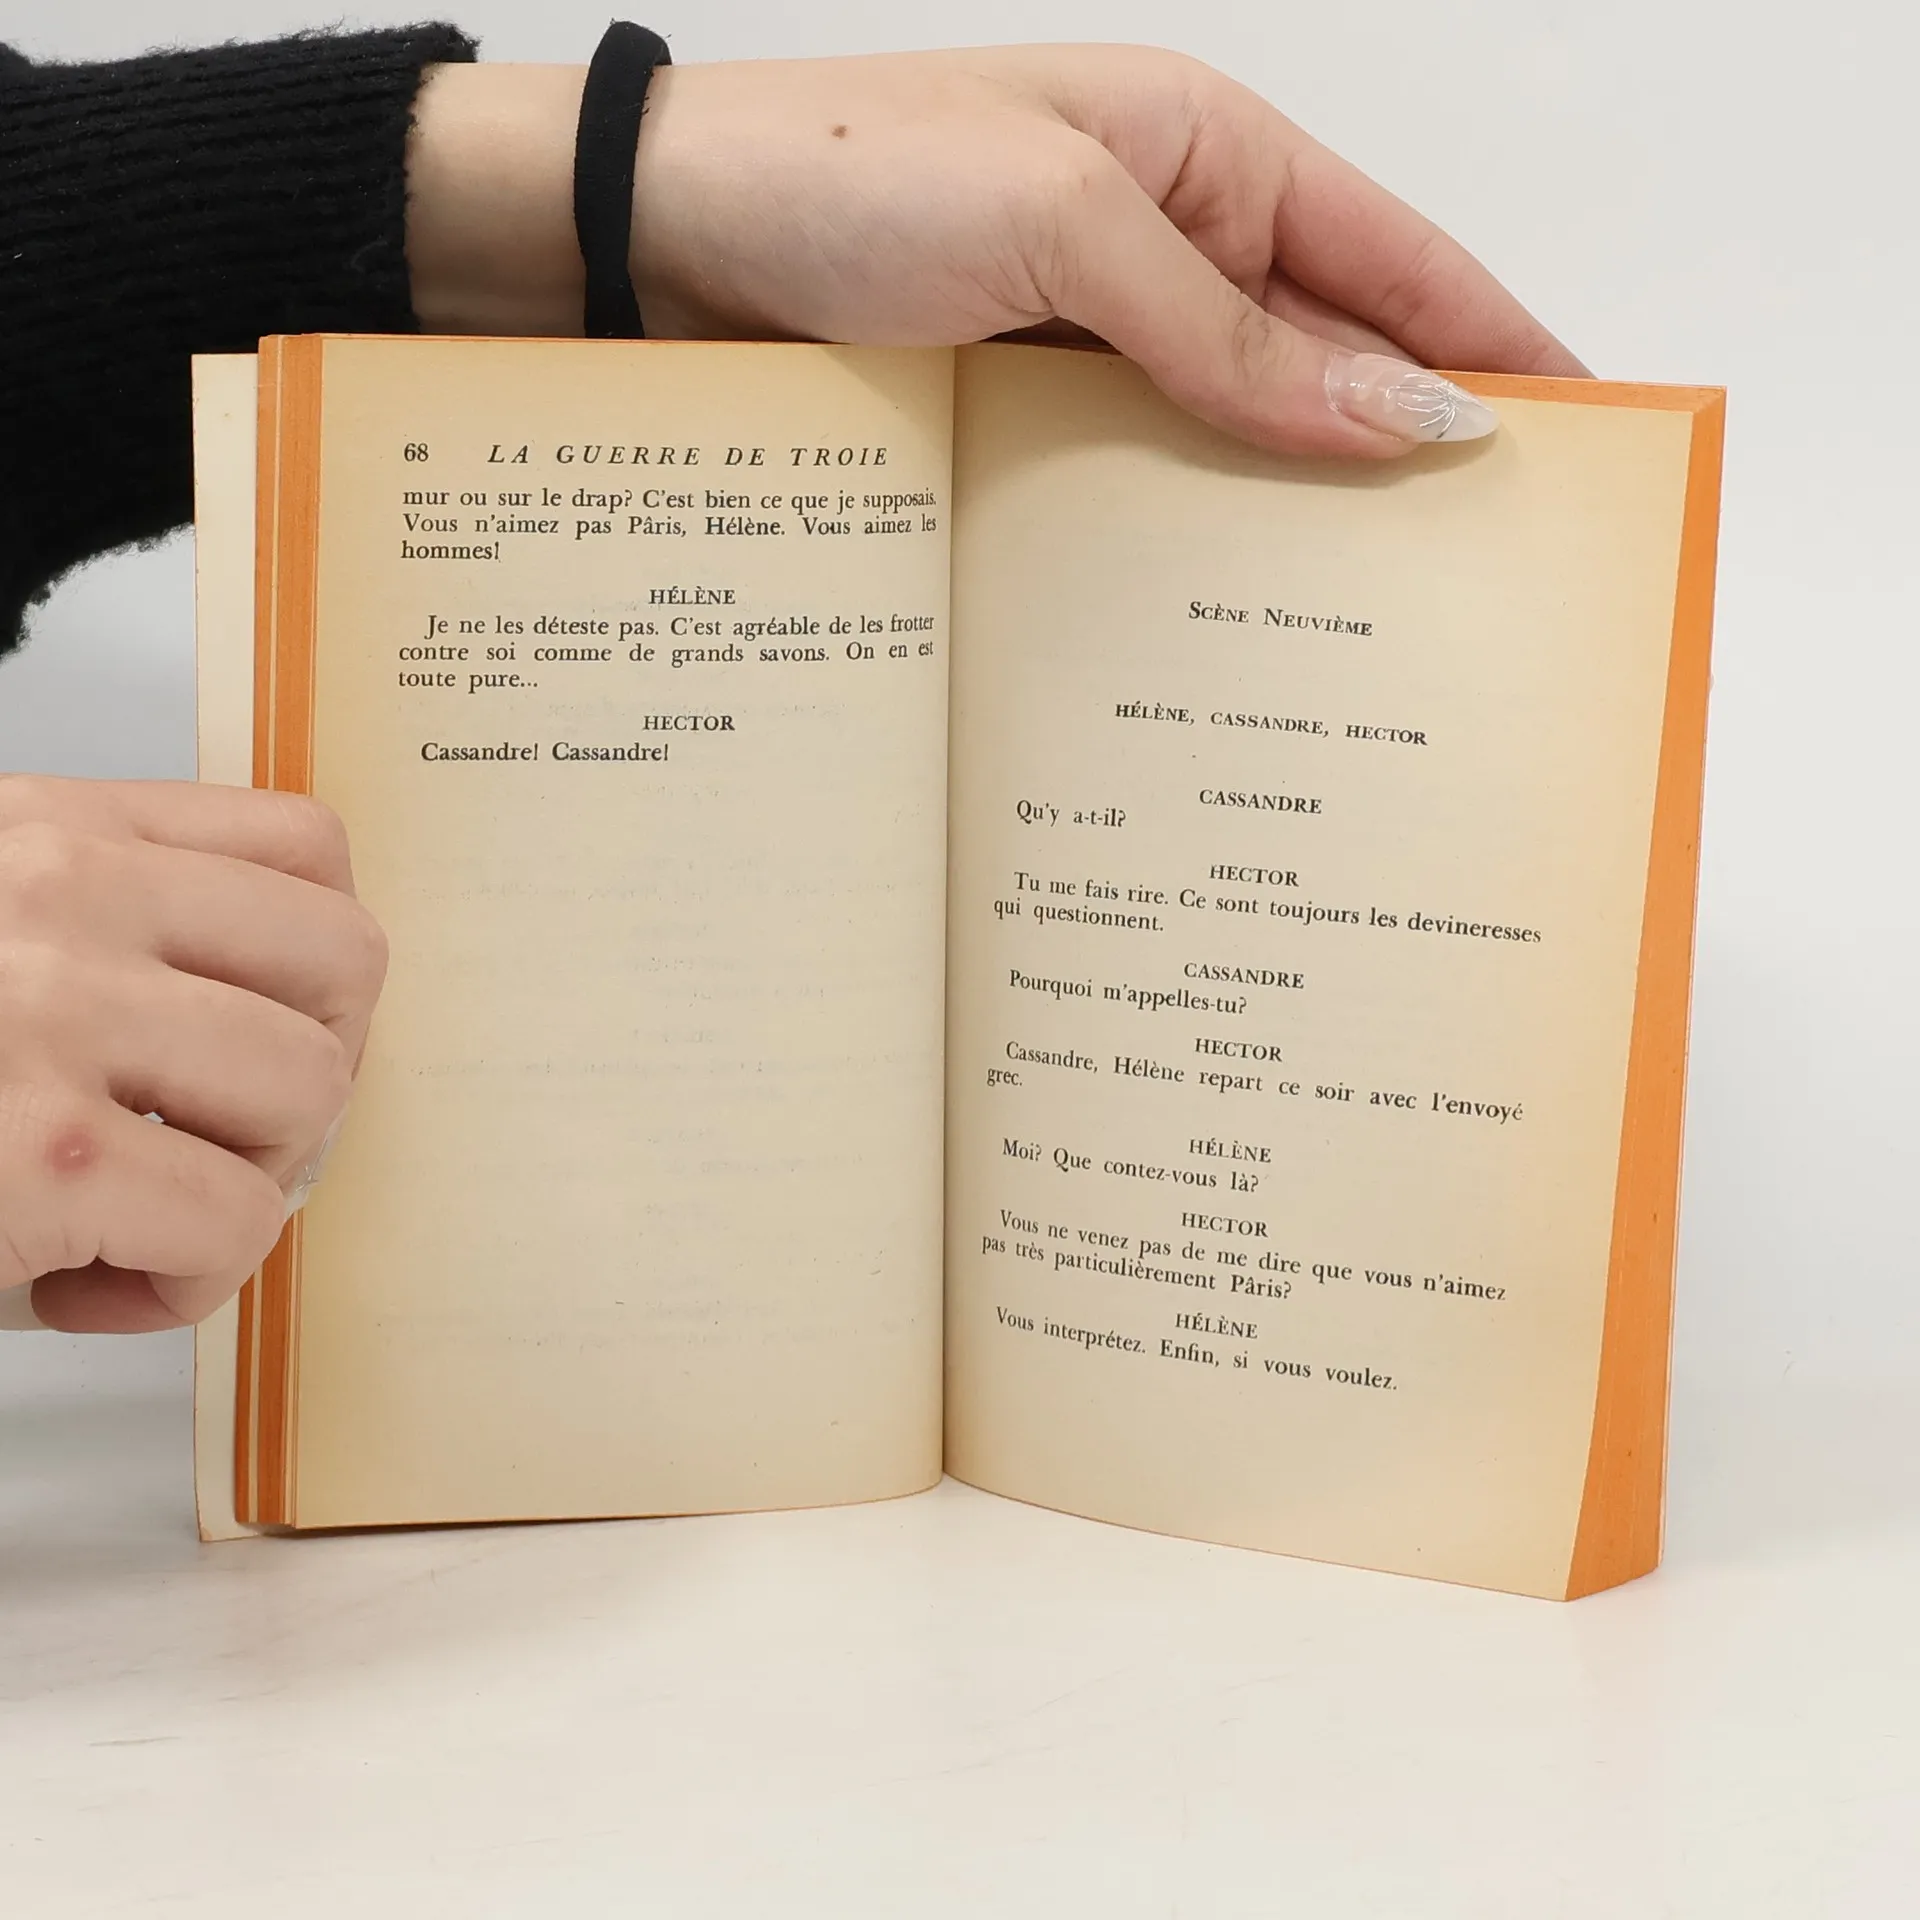 68 LA GUERRE DE TROIE
mur ou sur le drap? C'est bien ce que je supposais.
Vous n'aimez pas Pâris, Hélène. Vous aimez les
hommes!
HÉLÈNE
Je ne les déteste pas. C'est agréable de les frotter
contre soi comme de grands savons. On en est
toute pure...
HECTOR
Cassandre! Cassandre!
SCÈNE NEUVIÈME
HÉLÈNE, CASSANDRE, HECTOR
CASSANDRE
Qu'y a-t-il?
HECTOR
Tu me fais rire. Ce sont toujours les devineresses
qui questionnent.
CASSANDRE
Pourquoi m'appelles-tu?
HECTOR
Cassandre, Hélène repart ce soir avec l'envoyé
grec.
HÉLÈNE
Moi? Que contez-vous là?
HECTOR
Vous ne venez pas de me dire que vous n'aimez
pas très particulièrement Pâris?
HÉLÈNE
Vous interprétez. Enfin, si vous voulez.